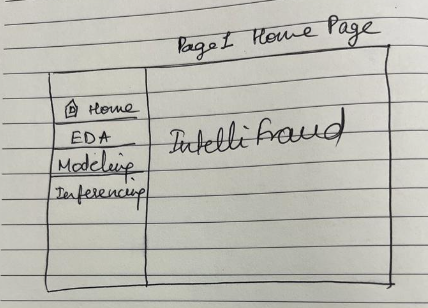 Page 1 Home Page
Home
EDA
Modeling
Inferencing
IntelliFraud